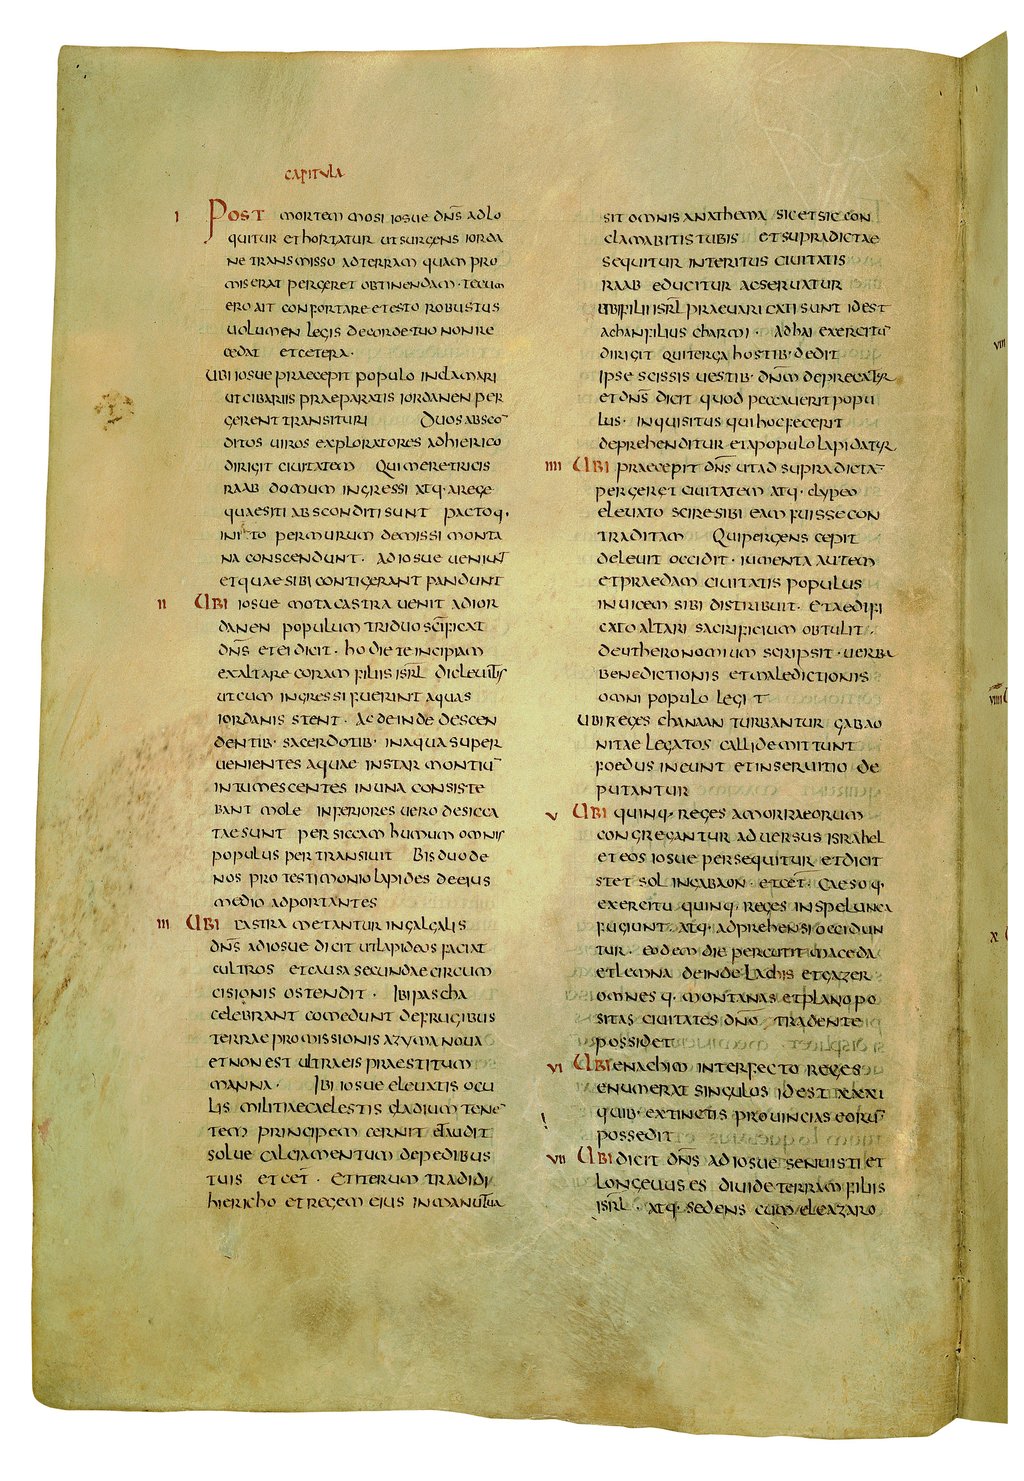 CAPITULA
I POST mortem mosi iosue dn̄s adlo
quitur ethortatur ut surgens iorda
ne transmisso adterram quam pro
miserat pergeret obtinendam · tecum
ero ait confortare etesto robustus
uolumen legis decorde tuo non re
cedat etcetera ·
Ubi iosue praecepit populo inclamari
ut cibariis praeparatis iordanen per
gerent transituri Duos absco̅
ditos uiros exploratores adhierico
dirigit ciuitatem Qui meretricis
raab domum ingressi atq· arege
quaesiti absconditi sunt pactoq·
inito permurum demissi monta
na conscendunt · adiosue ueniunt
etquaesibi contigerant pandunt
II UBI iosue mota castra uenit adior
danen populum triduo sc̄ificat
dn̄s et ei dicit · hodie te incipiam
exaltare coram filiis isr̄l dicleuitis
ut cum ingressi fuerint aquas
iordanis stent · Ac deinde descen
dentib· sacerdotib· inaqua super
uenientes aquae instar montiu̅
intumescentes inuna consiste
bant mole inferiores uero desicca
tae sunt per siccam humum omnis
populus pertransiuit Bis duode
nos pro testimonio lapides deeius
medio adportantes
III UBI castra metantur ingalgalis
dn̄s adiosue dicit ut lapideos faciat
cultros etcausa secundae circum
cisionis ostendit · Ibi pascha
celebrant comedunt defrugibus
terrae promissionis azyma noua
et non est ultra eis praestitum
manna · Ibi iosue eleuatis ocu
lis militiae caelestis gladium tene̅
tem principem cernit et audit
solue calciamentum depedibus
tuis et cet̄ · Et iterum tradidi
hiericho etregem eius inmanu tua
sit omnis anathema sic et sic con
clamabitis tubis etsupradictae
sequitur interitus ciuitatis
raab educitur acseruatur
ubi filii isr̄l praeuaricati sunt idest
achan filius charmi · Adhai exercitu̅
dirigit qui terga hostib· dedit
ipse scissis uestib· dn̄m deprecatur
et dn̄s dicit quod peccauerit popu
lus · inquisitus qui hoc fecerit
deprehenditur et apopulo lapidatur
IIII UBI praecepit dn̄s ut ad supradicta̅
pergeret ciuitatem atq· clypeo
eleuato scire sibi eam fuisse con
traditam Qui pergens cepit
deleuit occidit · iumenta autem
etpraedam ciuitatis populus
inuicem sibi distribuit · Et aedifi
cato altari sacrificium obtulit ·
deutheronomium scripsit · uerba
benedictionis etmaledictionis
omni populo legit
Ubi reges chanaan turbantur gabao
nitae legatos callide mittunt
foedus ineunt et inseruitio de
putantur
V UBI quinq· reges amorraeorum
congregantur aduersus israhel
et eos iosue persequitur et dicit
stet sol ingabaon · et cet̄ · Caeso q·
exercitu quinq· reges inspelunca
fugiunt · atq· adprehensi occidun
tur · eodem die percutit maceda
et lemna deinde Lachis etgazer
omnes q· montanas et plano po
sitas ciuitates dn̄o tradente
possidet
VI UBI enachim interfecto reges
enumerat singulos idest xxxi
quib· extinctis prouincias eoru̅
possedit
VII UBI dicit dn̄s ad iosue senuisti et
longeuus es diuide terram filiis
isr̄l · atq· sedens cum eleazaro
VIII
VIIII
X